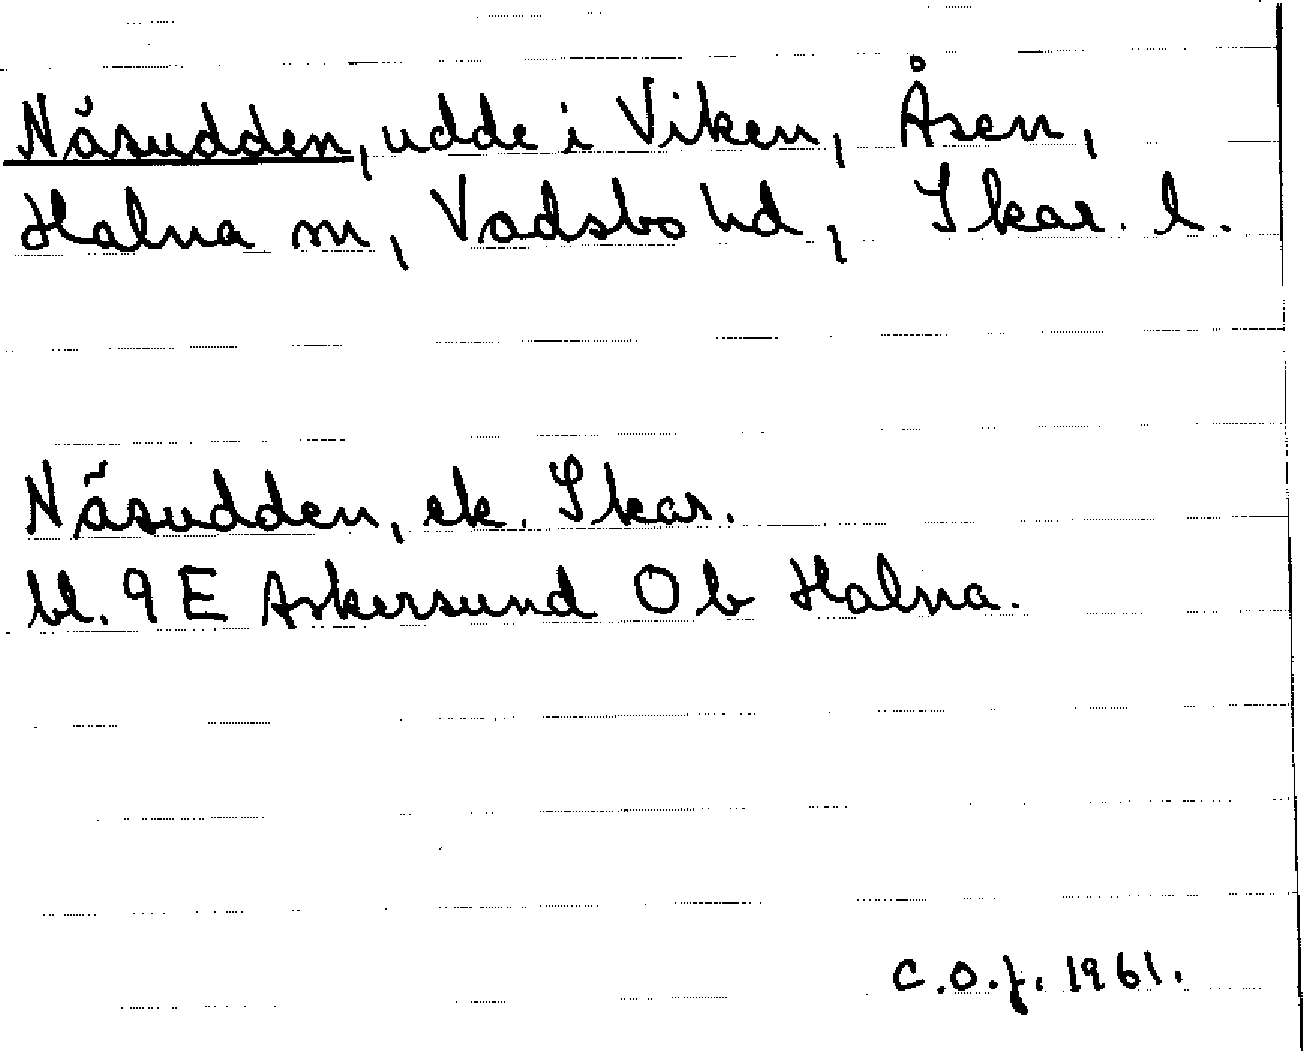 Näsudden, udde i Viken, Åsen,
Halna sn, Vadsbo hd, Skar. l.
Näsudden, ek. Skar.
bl. 9 E Askersund O b Halna.
C.O.J. 1961.